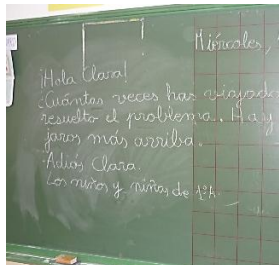 Miércoles
¡Hola Clara!
¿Cuántas veces has viajado
resuelto el problema. Hay
jaros más arriba.
Adiós Clara.
Los niños y niñas de 1ºA